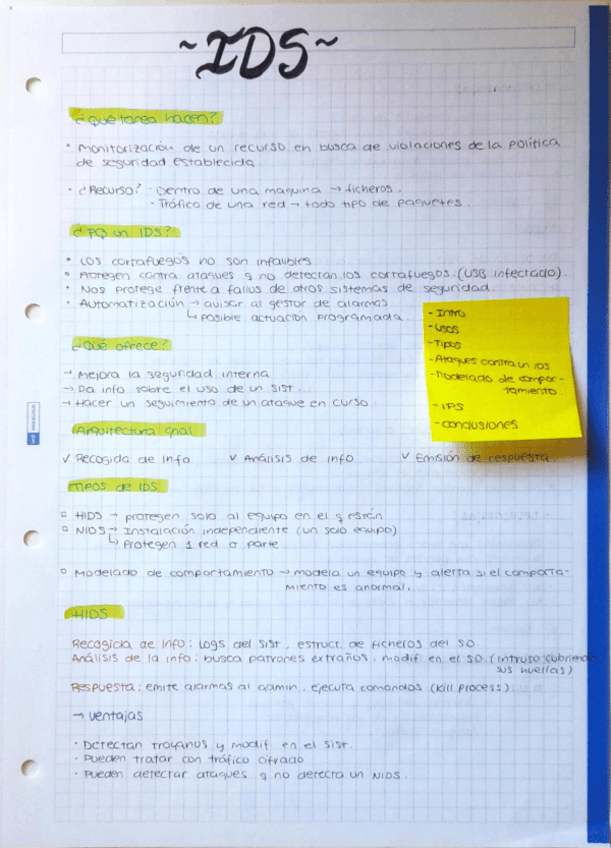 ~IDS~
¿Qué tarea hacen?
• Monitorización de un recurso en busca de violaciones de la política
de seguridad establecida
• ¿Recurso? - Dentro de una maquina → ficheros.
- Tráfico de una red → todo tipo de paquetes.
¿PQ un IDS?
• Los cortafuegos no son infalibles
• Protegen contra ataques q no detectan los cortafuegos. (USB infectado).
• Nos protege frente a fallos de otros sistemas de seguridad.
• Automatización → avisar al gestor de alarmas
↳ posible actuación programada.
- Intro
- Usos
- Tipos
- Ataques contra un IDS
- Modelado de compor-
tamiento.
- IPS
- Conclusiones
¿Qué ofrece?
→ Mejora la seguridad interna
→ Da info sobre el uso de un sist...
→ Hacer un seguimiento de un ataque en curso.
Arquitectura gnal
✓ Recogida de info ✓ Análisis de info ✓ Emisión de respuesta
Tipos de IDS
▫ HIDS → protegen solo al equipo en el q están
▫ NIDS → Instalación independiente (un solo equipo)
↳ Protegen 1 red o parte
▫ Modelado de comportamiento → modela un equipo y alerta si el comporta-
miento es anormal.
HIDS
Recogida de info: logs del sist, estruct. de ficheros del SO
Análisis de la info: busca patrones extraños, modif en el SO (intruso cubriendo
sus huellas)
Respuesta: emite alarmas al admin, ejecuta comandos (kill process)
→ Ventajas
· Detectan troyanos y modif en el sist.
· Pueden tratar con tráfico cifrado
· Pueden detectar ataques q no detecta un NIDS.